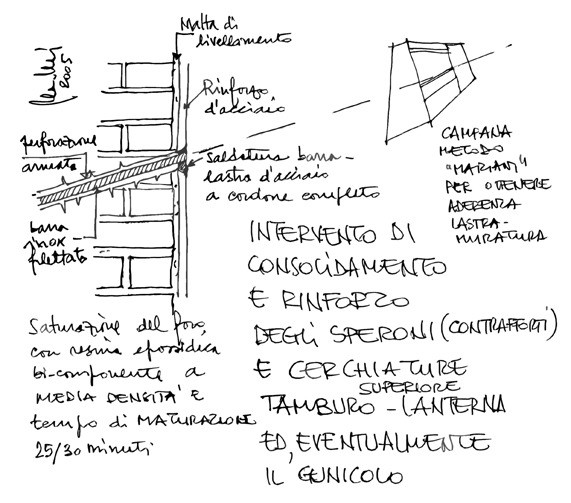 2005
Malta di
livellamento
Rinforzo
d'acciaio
perforazione
armata
Saldatura barra-
lastra d'acciaio
a cordone completo
barra
inox
filettata
Saturazione del foro,
con resina epossidica
bi-componente a
MEDIA DENSITA' E
tempo di MATURAZIONE
25/30 minuti
CAMPANA
METODO
"MARIANI"
PER OTTENERE
ADERENZA
LASTRA-
MURATURA
INTERVENTO DI
CONSOLIDAMENTO
E RINFORZO
DEGLI SPERONI (CONTRAFFORTI)
E CERCHIATURE
SUPERIORE
TAMBURO - LANTERNA
ED, EVENTUALMENTE
IL GUNICOLO